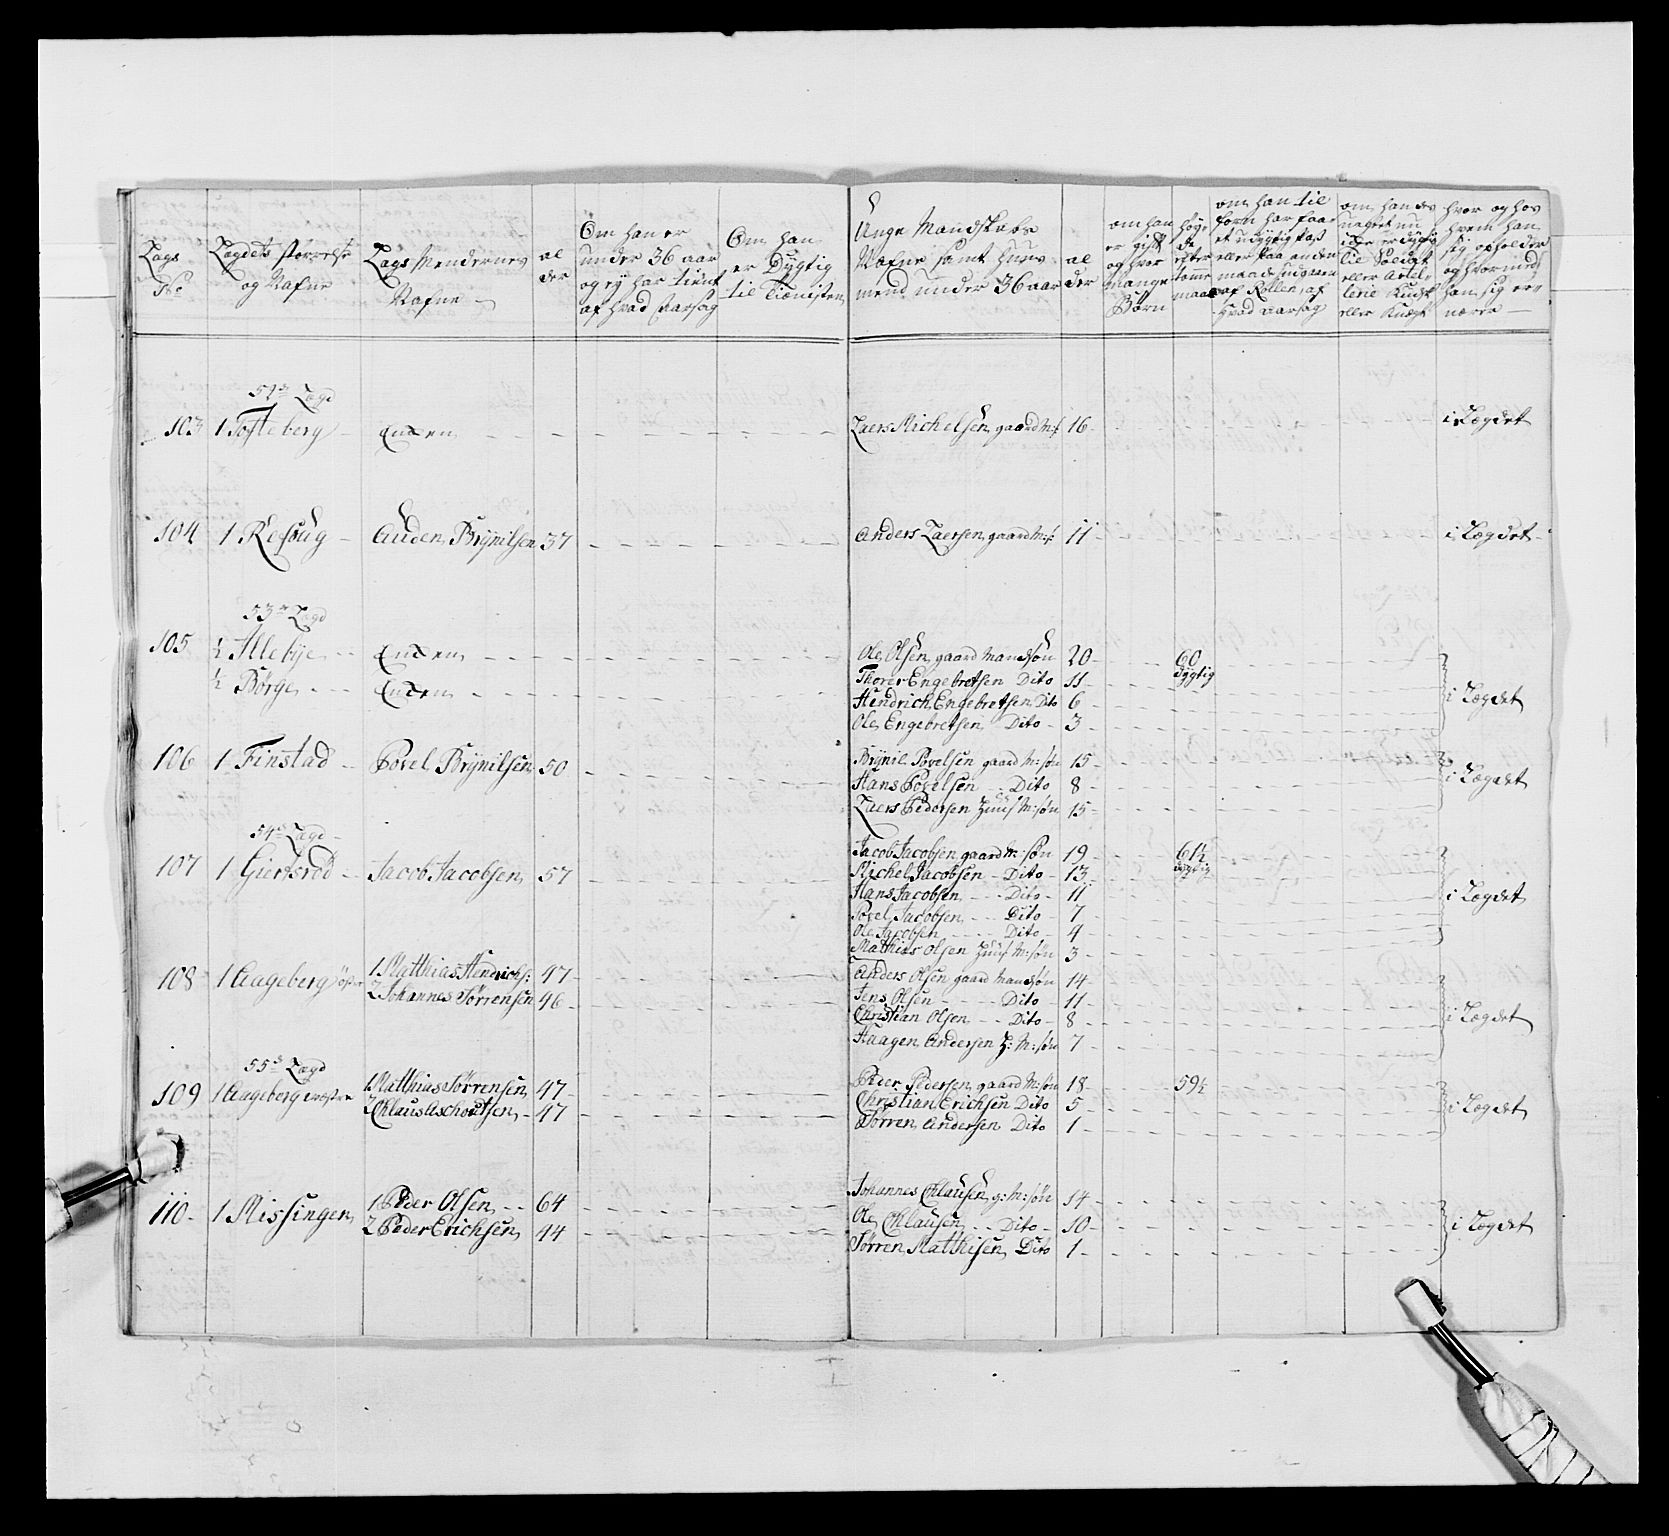 Lags No
Lagdets størrelse og Nafne
Lags Mendernes Nafne
al der
Om han er under 36 aar og ey har tient af hvad aarsag
Om han er Dygtig til Tienisten
Unge Mandskabs Nafne samt Huus mend under 36 aar
al der
om han er gift og hvor mange Børn
høyde efter tomme maal
om han til forn har faaet et udygtig Pass eller paa anden maade sluppen af Rollen, af hvad aarsag
hvor og hos hvem han sig opholder og hvormed han sig ernærer
52de Lægd
103 1 Tofteberg Enken Laers Michelsen gaardM:s 16 i Lægdet
104 1 Refsaug Auden Brynilsen 37 Anders Laersen gaardM:s: 11 i Lægdet
53de Lægd
105 ½ Illebye Enken Ole Olsen gaard Mandsøn 20 60 dygtig
½ Børge Enken Thorer Engebretsen Dito 11
Hendrich Engebretsen Dito 6 i Lægdet
Ole Engebretsen Dito 3
106 1 Finstad Povel Brynilsen 50 Brynil Povelsen gaard M:søn 15
Hans Povelsen Dito 8 i Lægdet
Laers Pedersen Huus M:søn 15
54de Lægd
107 1 Giertsrød Jacob Jacobsen 57 Jacob Jacobsen gaard M:søn 19 61½ dygtig
Michel Jacobsen Dito 13
Hans Jacobsen Dito 11 i Lægdet
Povel Jacobsen Dito 7
Ole Jacobsen Dito 4
Mathias Olsen Huus M:søn 3
108 1 Aageberg øst 1 Matthias Hendrichs: 47 Anders Olsen gaard Mandsøn 14
2 Johannes Sørrensen 46 Jens Olsen Dito 11
Christian Olsen Dito 8 i Lægdet
Haagen Andersen H: M:søn 7
55de Lægd
109 1 Aageberg vestre 1 Matthias Sørrensen 47 Peder Pedersen gaard M:søn 18 59½
2 Claus Aschoutsen 47 Christian Erichsen Dito 5 i Lægdet
Sørren Andersen Dito 1
110 1 Missingen 1 Peder Olsen 64 Johannes Clausen g: M:søn 14
2 Peder Erichsen 44 Ole Clausen Dito 10 i Lægdet
Sørren Mathisen Dito 1